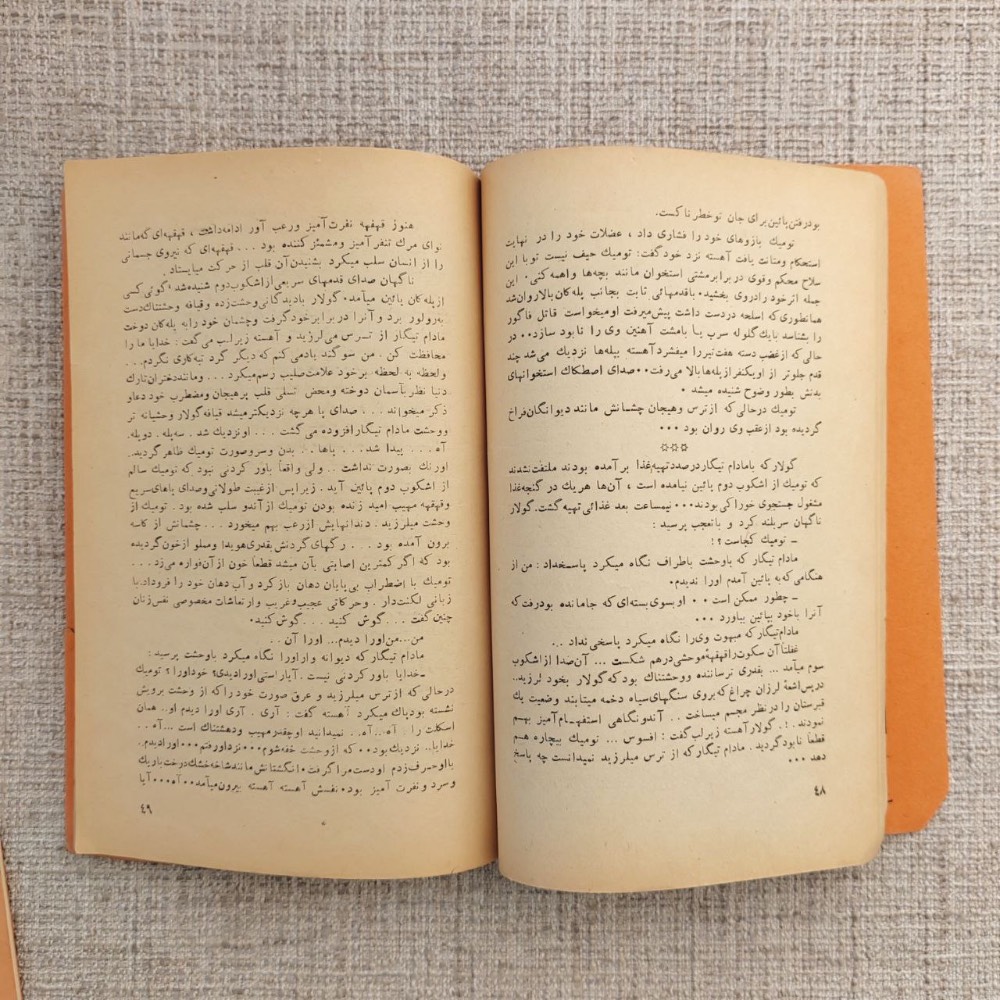 بود رفتن پائین برای جان تو خطرناکست.
تومیك بازوهای خود را فشاری داد ، عضلات خود را در نهایت
استحکام ومتانت یافت آهسته نزد خود گفت: تومیك حیف نیست تو با این
سلاح محکم وقوی در برابر مشتی استخوان مانند بچه‌ها واهمه کنی. این
جمله اثر خود را دروی بخشید. باقدمهائی ثابت بجانب پله‌کان بالا روان شد
همانطوری که اسلحه در دست داشت پیش میرفت او میخواست قاتل فاگور
را بشناسد با یك گلوله سرب یا بامشت آهنین وی را نابود سازد۰۰ در
حالی که از غضب دسته هفت تیر را میفشرد آهسته بپله‌ها نزدیك می‌شد چند
قدم جلوتر از او یکنفر از پله‌ها بالا می‌رفت۰۰ صدای اصطکاك استخوانهای
بدنش بطور وضوح شنیده میشد
تومیك درحالی که از ترس وهیجان چشمانش مانند دیوانگان فراخ
گردیده بود از عقب وی روان بود ۰۰۰
☼☼☼
گولار که بامادام تیگار درصدد تهیه غذا بر آمده بودند ملتفت نشدند
که تومیك از اشکوب دوم پائین نیامده است ، آن‌ها هر یك در گنجه غذا
مشغول جستجوی خوراکی بودند۰۰۰ نیمساعت بعد غذائی تهیه گشت. گولار
ناگهان سربلند کرد و باتعجب پرسید :
ـ تومیك کجاست ؟!
مادام تیگار که باوحشت باطراف نگاه میکرد پاسخداد : من از
هنگامی که به پائین آمدم اورا ندیدم.
ـ چطور ممکن است ۰۰ او بسوی بسته‌ای که جامانده بود رفت که
آنرا باخود بپائین بیاورد ۰۰۰
مادام تیگار که مبهوت وی‌را نگاه میکرد پاسخی نداد ..
غفلتاً آن سکوت را قهقهۀ موحشی درهم شکست ... آن صدا از اشکوب
سوم میآمد .. بقدری ترساننده ووحشتناك بود که گولار بخود لرزید..
در پس اشعۀ لرزان چراغ که بروی سنگهای سیاه دخمه میتابند وضعیت یك
قبرستان را در نظر مجسم میساخت . . آندو نگاهی استفهام آمیز بهم
نمودند . !. گولار آهسته زیر لب گفت : افسوس ... تومیك بیچاره هم
قطعاً نابود گردید. مادام تیگار که از ترس میلرزید نمیدانست چه پاسخ
دهد ۰۰۰
٤٨
هنوز قهقهه نفرت آمیز ورعب آور ادامه داشت ، قهقهه‌ای که مانند
نوای مرك تنفر آمیز ومشمئز کننده بود ... قهقهه‌ای که نیروی جسمانی
را از انسان سلب میکرد بشنیدن آن قلب از حرکت میایستاد .
ناگهان صدای قدمهای سریعی از اشکوب دوم شنیده شد گوئی کسی
از پله‌کان پائین میآمد۰ گولار بادیدگانی وحشت‌زده و قیافه وحشتناك دست
به‌رولور برد و آنرا در برابر خود گرفت وچشمان خود رابه پله‌کان دوخت
مادام تیگار از ترس می‌لرزید و آهسته زیر لب می‌گفت : خدایا ما را
محافظت کن . من سوگند یاد می کنم که دیگر گرد تبه‌کاری نگردم...
ولحظه به لحظه بر خود علامت صلیب رسم میکرد . . . ومانند دختران تارك
دنیا نظر بآسمان دوخته ومحض تسلی قلب پرهیجان ومضطرب خود دعا و
ذکر میخواند . . . صدای پا هر چه نزدیکتر میشد قیافه گولار وحشیانه تر
ووحشت مادام تیگار افزوده می گشت . . . او نزدیك شد . سه پله . دو پله.
آه . . . پیدا شد . . . پاها . . بدن وسر وصورت تومیك ظاهر گردید.
او رنك بصورت نداشت . . ولی واقعاً باور کردنی نبود که تومیك سالم
از اشکوب دوم پائین آید . زیرا پس از غیبت طولانی وصدای پاهای سریع
وقهقهه مهیب امید زنده بودن تومیك از آندو سلب شده بود . تومیك از
وحشت میلرزید . دندانهایش از رعب بهم میخورد . . . چشمانش از کاسه
بیرون آمده بود . . . رگهای گردنش بقدری هویدا ومملو از خون گردیده
بود که اگر کمترین اصابتی بآن میشد قطعاً خون از آن فواره می‌زد . . .
تومیك با اضطراب بی‌پایان دهان باز کرد و آب دهان خود را فروداد. با
زبانی لکنت‌دار . وحرکاتی عجیب وغریب وارتعاشات مخصوصی نفس زنان
چنین گفت . . . گوش کنید . . . گوش کنید۰
من... من اورا دیدم... اورا آن ..
مادام تیگار که دیوانه وار اورا نگاه میکرد باوحشت پرسید :
ـ خدایا باور کردنی نیست. آیا راستی اورا دیدی؟ خود اورا ؟ تومیك
درحالی که از ترس میلرزید و عرق صورت خود را که از وحشت برویش
نشسته بود پاك میکرد آهسته گفت : آری . آری اورا دیدم او.. همان
اسکلت را . آه.. آه.. نمیدانید اوچقدر مهیب و دهشتناك است... آه..
خدایا.. نزدیك بود۰۰ که از وحشت خفه شوم۰۰۰ نزد اورفتم۰۰۰ اورا دیدم..
بااو حرف زدم او دست مرا گرفت۰ انگشتانش مانند شاخه خشك درخت باریك
وسرد و نفرت آمیز بود۰ نفسش آهسته آهسته بیرون میآمد۰۰ آه۰۰۰ آیا
٤٩